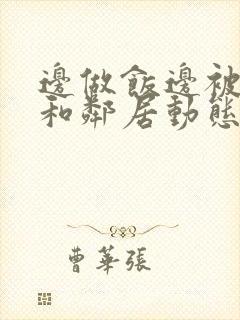 邊做飯邊被
和鄰居動態
曹華張